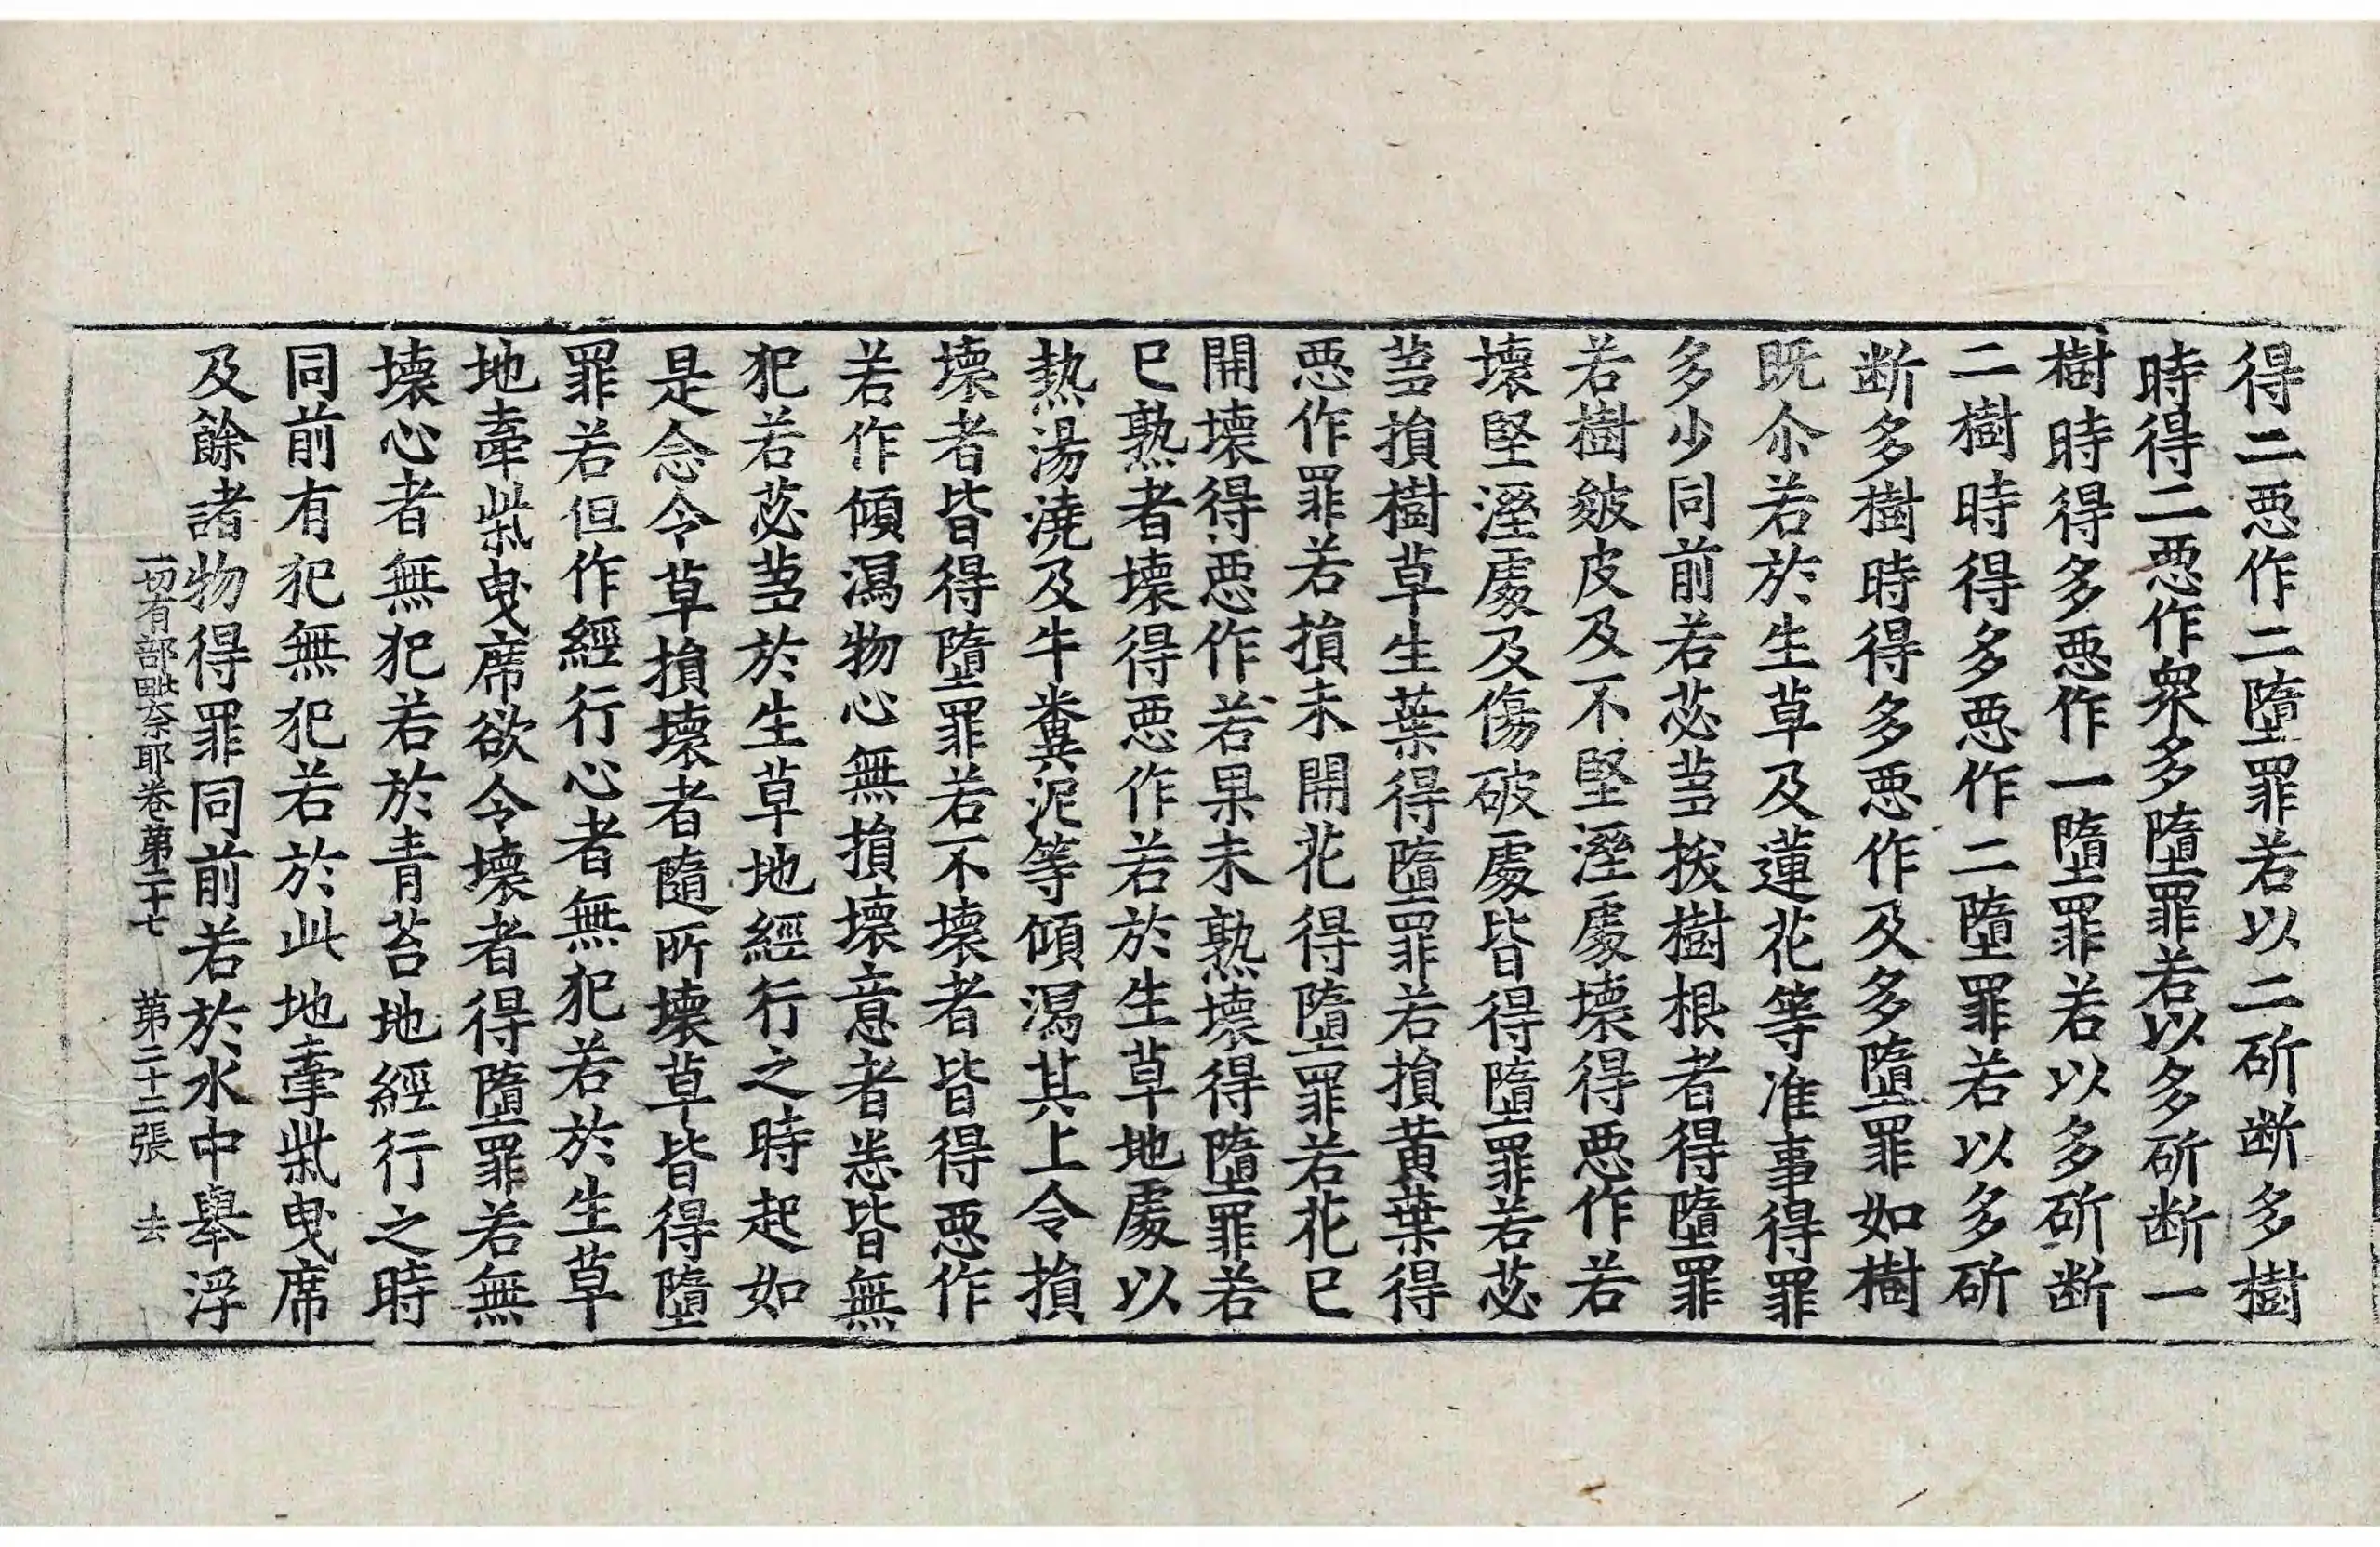 得二恶作二墮罪若以二斫断多樹
時得二恶作衆多墮罪若以多斫断一
樹時得多恶作一墮罪若以多斫断
二樹時得多恶作二墮罪若以多斫
断多樹時得多恶作及多墮罪如樹
既尒若於生草及蓮花等准事得罪
多少同前若苾蒭拔樹根者得墮罪
若樹皴皮及不堅溼處壞得恶作若
壞堅溼處及傷破處皆得墮罪若苾
蒭損樹草生葉得墮罪若損黃葉得
恶作罪若損未開花得墮罪若花已
開壞得恶作若果未熟壞得墮罪若
已熟者壞得恶作若於生草地處以
熱湯澆及牛糞泥等傾瀉其上令損
壞者皆得墮罪若不壞者皆得恶作
若作傾瀉物心無損壞意者悉皆無
犯若苾蒭於生草地經行之時起如
是念令草損壞者隨所壞草皆得墮
罪若但作經行心者無犯若於生草
地牽柴曳席欲令壞者得墮罪若無
壞心者無犯若於青苔地經行之時
同前有犯無犯若於此地牽柴曳席
及餘諸物得罪同前若於水中舉浮
一切有部毗奈耶卷第二十七 第二十二張 去